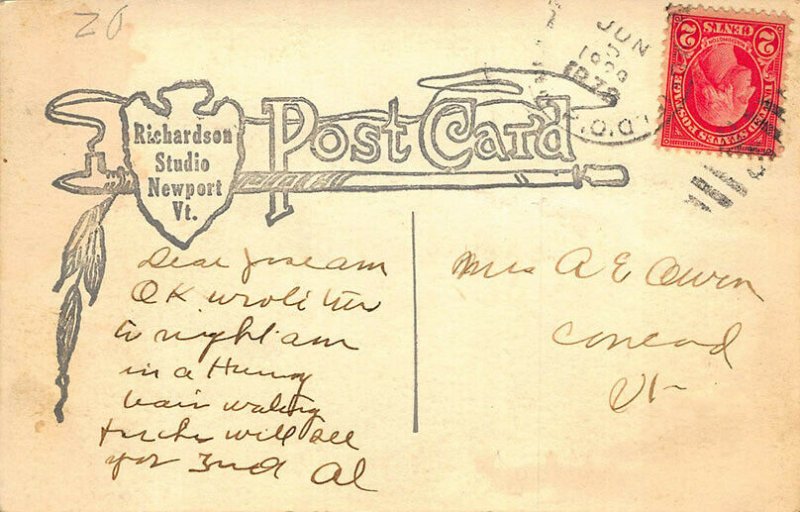 20
Richardson
Studio
Newport
Vt.
Post Card
JUN
1929
2 CENTS 2
UNITED STATES POSTAGE
WASHINGTON
Dear Jose am
OK wrote
to night am
in a Hurry
train waiting
will see
you 3nd Al
Mrs A E Owen
Concord
Vt